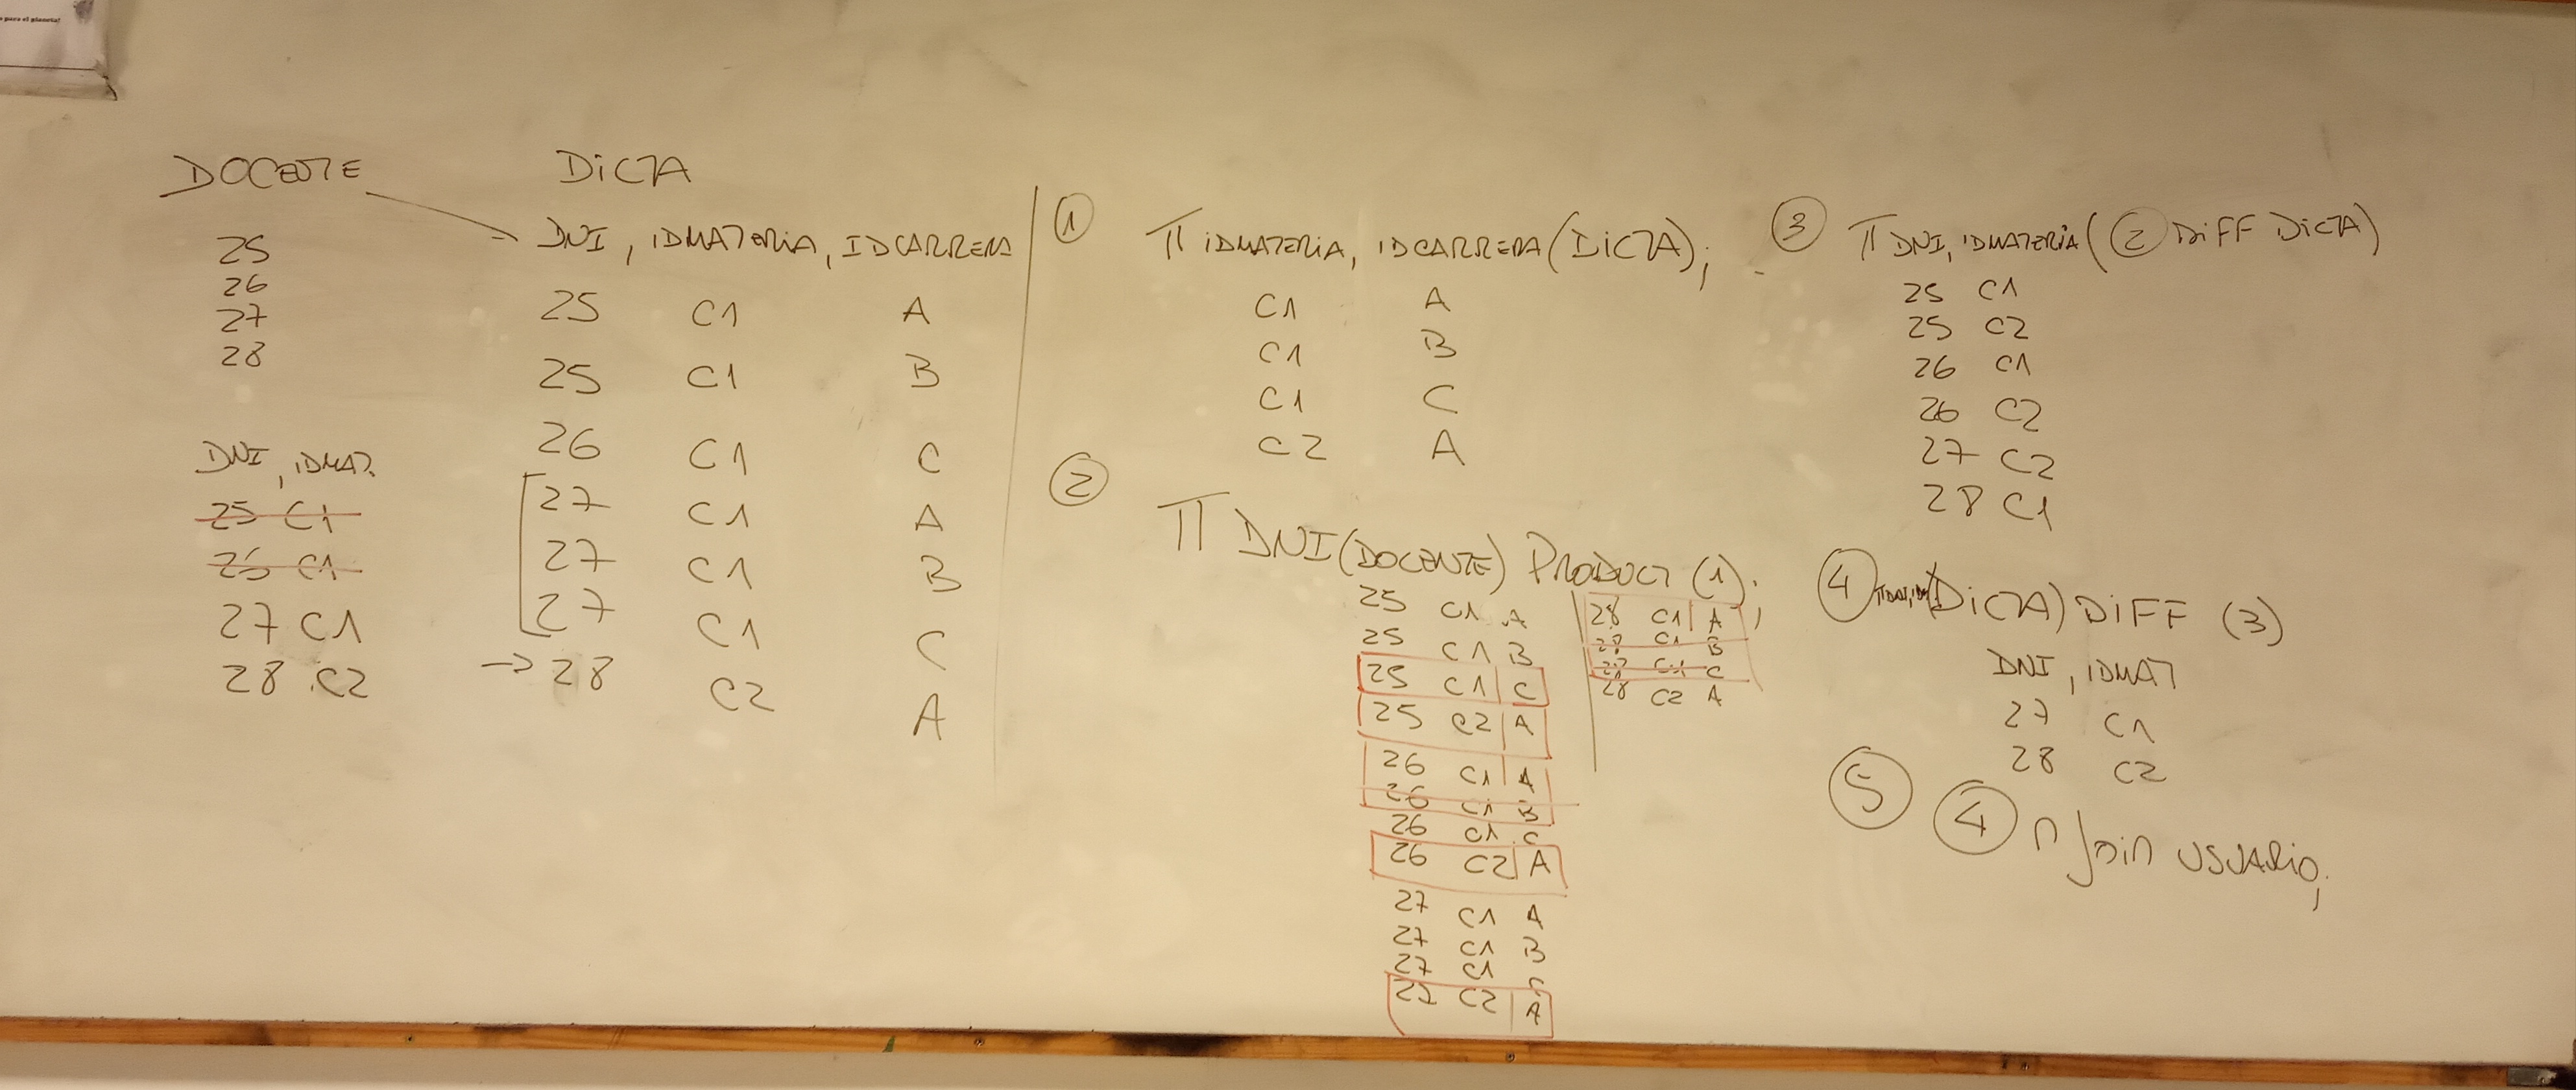 para el planeta!
DOCENTE
25
26
27
28
DNI, IDMAT.
25 C1
26 C1
27 C1
28 C2
DICTA
DNI, IDMATERIA, IDCARRERA
25 C1 A
25 C1 B
26 C1 C
27 C1 A
27 C1 B
27 C1 C
→ 28 C2 A
① π IDMATERIA, IDCARRERA (DICTA);
C1 A
C1 B
C1 C
C2 A
② π DNI (DOCENTE) PRODUCT (1);
25 C1 A
25 C1 B
25 C1 C
25 C2 A
26 C1 A
26 C1 B
26 C1 C
26 C2 A
27 C1 A
27 C1 B
27 C1 C
27 C2 A
28 C1 A
28 C1 B
28 C1 C
28 C2 A
③ π DNI, IDMATERIA (② DIFF DICTA)
25 C1
25 C2
26 C1
26 C2
27 C2
28 C1
④ (DICTA) DIFF (3)
DNI, IDMAT
27 C1
28 C2
⑤ ④ n Join USUARIO;